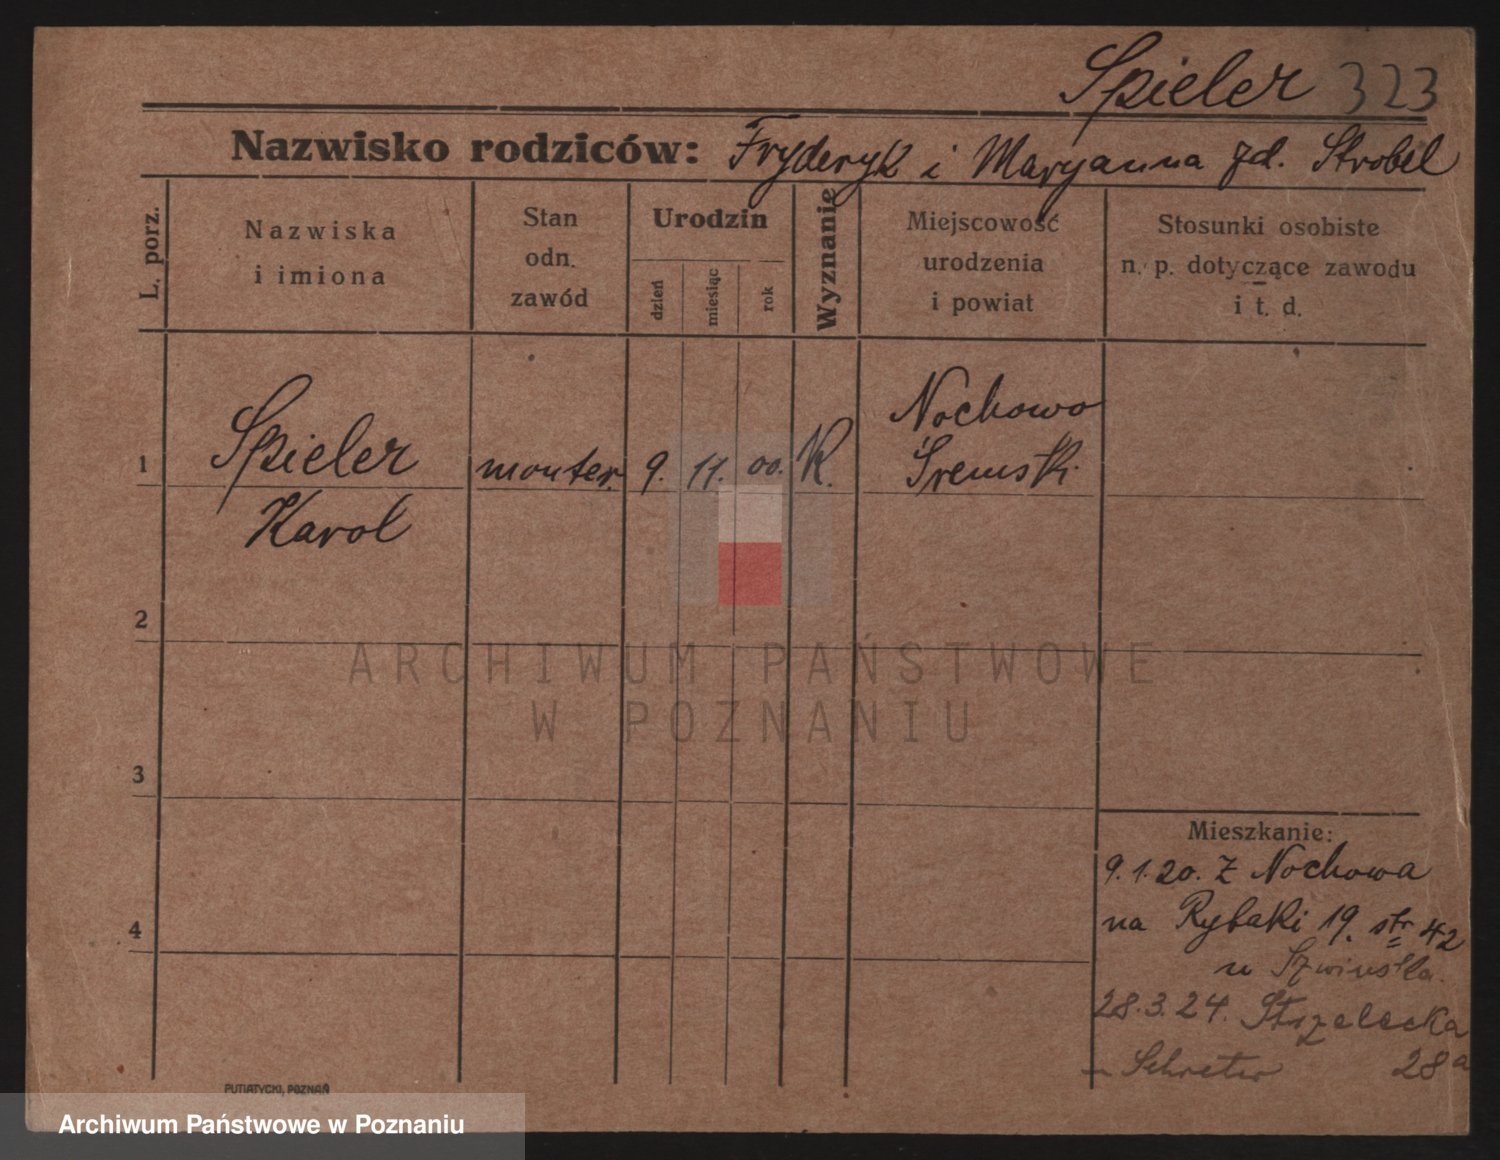 Spieler 323
Nazwisko rodziców: Fryderyk i Maryanna zd. Strobel
L. porz.
Nazwiska
i imiona
Stan
odn.
zawód
Urodzin
dzień
miesiąc
rok
Wyznanie
Miejscowość
urodzenia
i powiat
Stosunki osobiste
n. p. dotyczące zawodu
i t. d.
1
Spieler
Karol
monter.
9. 11. 00.
K.
Nochowo
Śremsk.
2
3
4
Mieszkanie:
9.1.20. z Nochowa
na Rybaki 19. str 42
u
28.3.24. Strzelecka
28a
PUTIATYCKI, POZNAŃ
ARCHIWUM PAŃSTWOWE
W POZNANIU
Archiwum Państwowe w Poznaniu